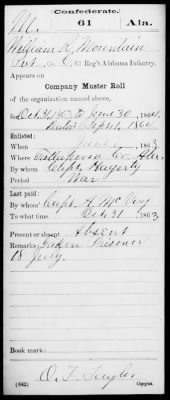 Confederate.
M. 61 Ala.
William R. Mountain
Pvt., Co. C, 61 Reg't Alabama Infantry.
Appears on
Company Muster Roll
of the organization named above,
for Oct 31, 63 to June 30, 1864.
Dated Sept 1, 1864
Enlisted:
When June, 1863
Where Tallapoosa Co. Ala.
By whom Capt. Hagerty
Period War
Last paid:
By whom Capt. A. McCoy
To what time Oct 31, 1863
Present or absent Absent
Remarks: Taken Prisoner
18 July.
Book mark:
(642) Copyist.